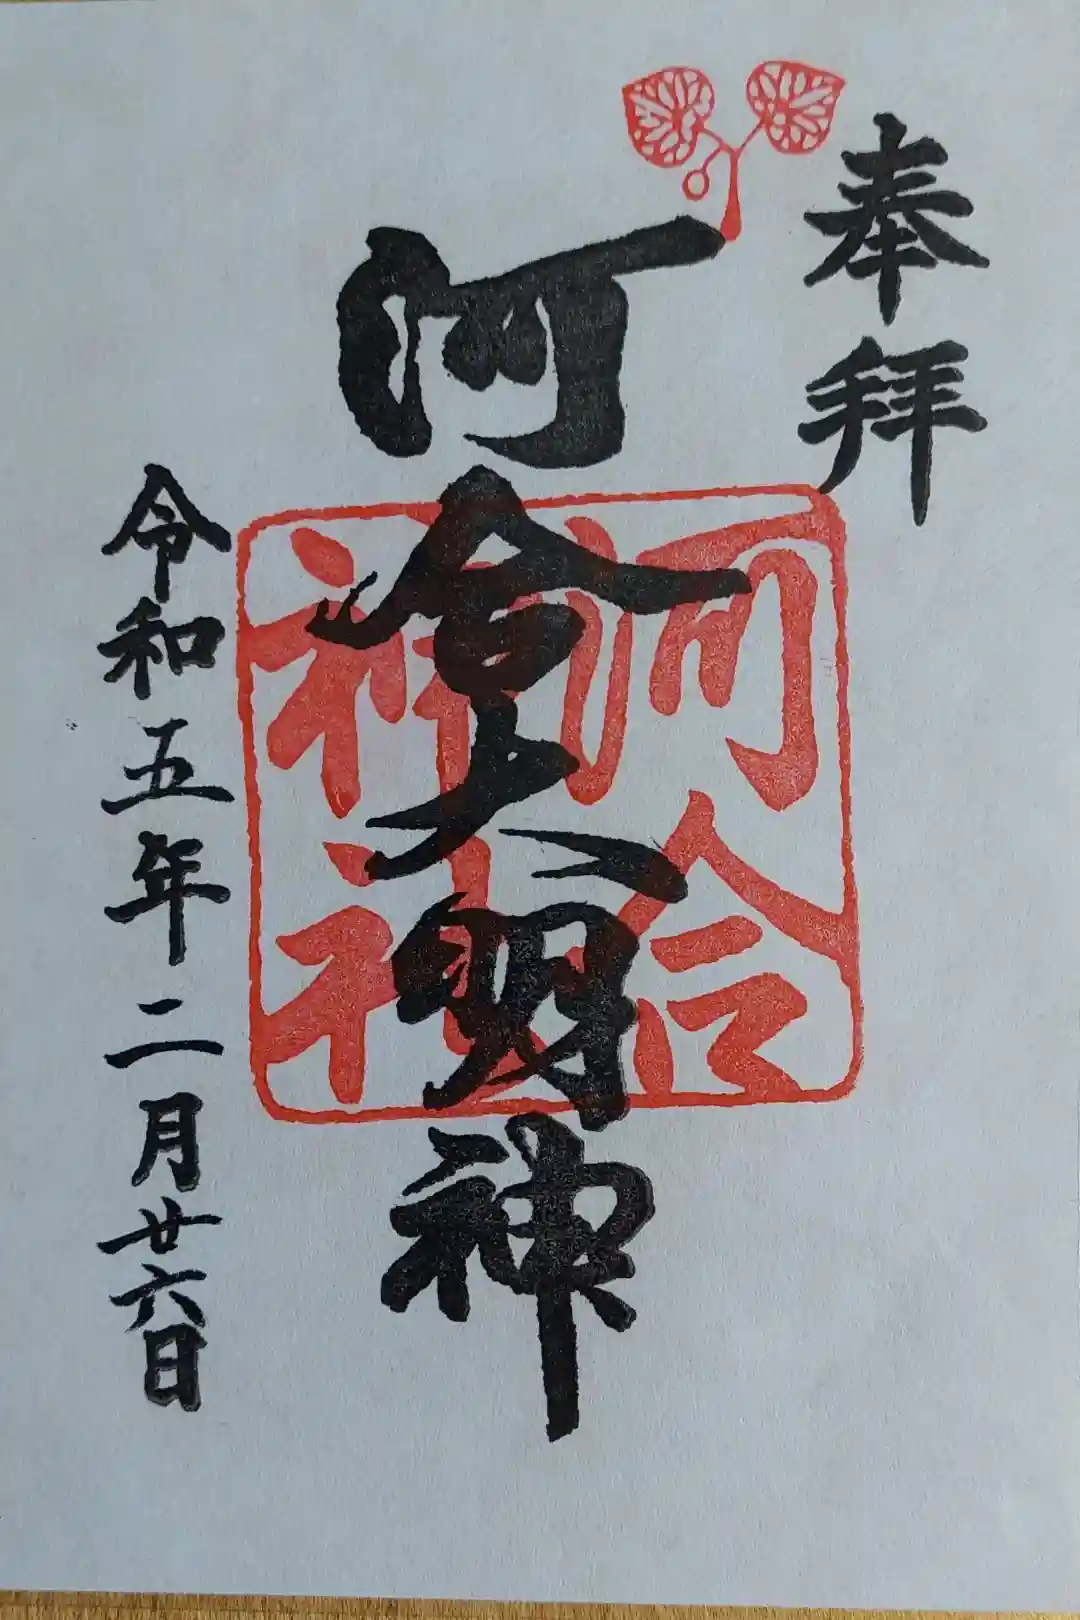 奉拝
河合大明神
河合神社
令和五年二月廿六日